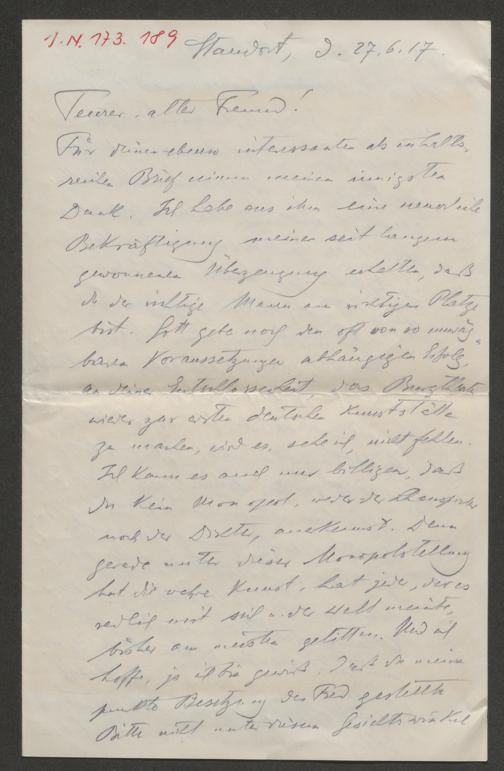 I.N. 173.189
Standort, d. 27.6.17.
Teurer, alter Freund!
Für deinen ebenso interessanten als inhalts-
reichen Brief nimm meinen innigsten
Dank. Ich habe aus ihm eine neuerliche
Bekräftigung meiner seit langem
gewonnenen Überzeugung erhalten, daß
du der richtige Mann am richtigen Platze
bist. Gott gebe noch den oft von so unwäg-
baren Voraussetzungen abhängigen Erfolg,
an deiner Entschlossenheit, das Burgtheater
wieder zur ersten deutschen Kunststätte
zu machen, wird es, sehe ich, nicht fehlen.
Ich kann es auch nur billigen, daß
du kein Monopol, weder der Schauspieler
noch der Dichter, anerkennst. Denn
gerade unter dieser Monopolstellung
hat die wahre Kunst, hat jeder, der es
redlich mit sich u. der Welt meinte,
bisher am meisten gelitten. Und ich
hoffe, ja ich bin gewiß, daß du meine
punkto Besetzung des Fred gestellte
Bitte nicht unter diesem Gesichtswinkel